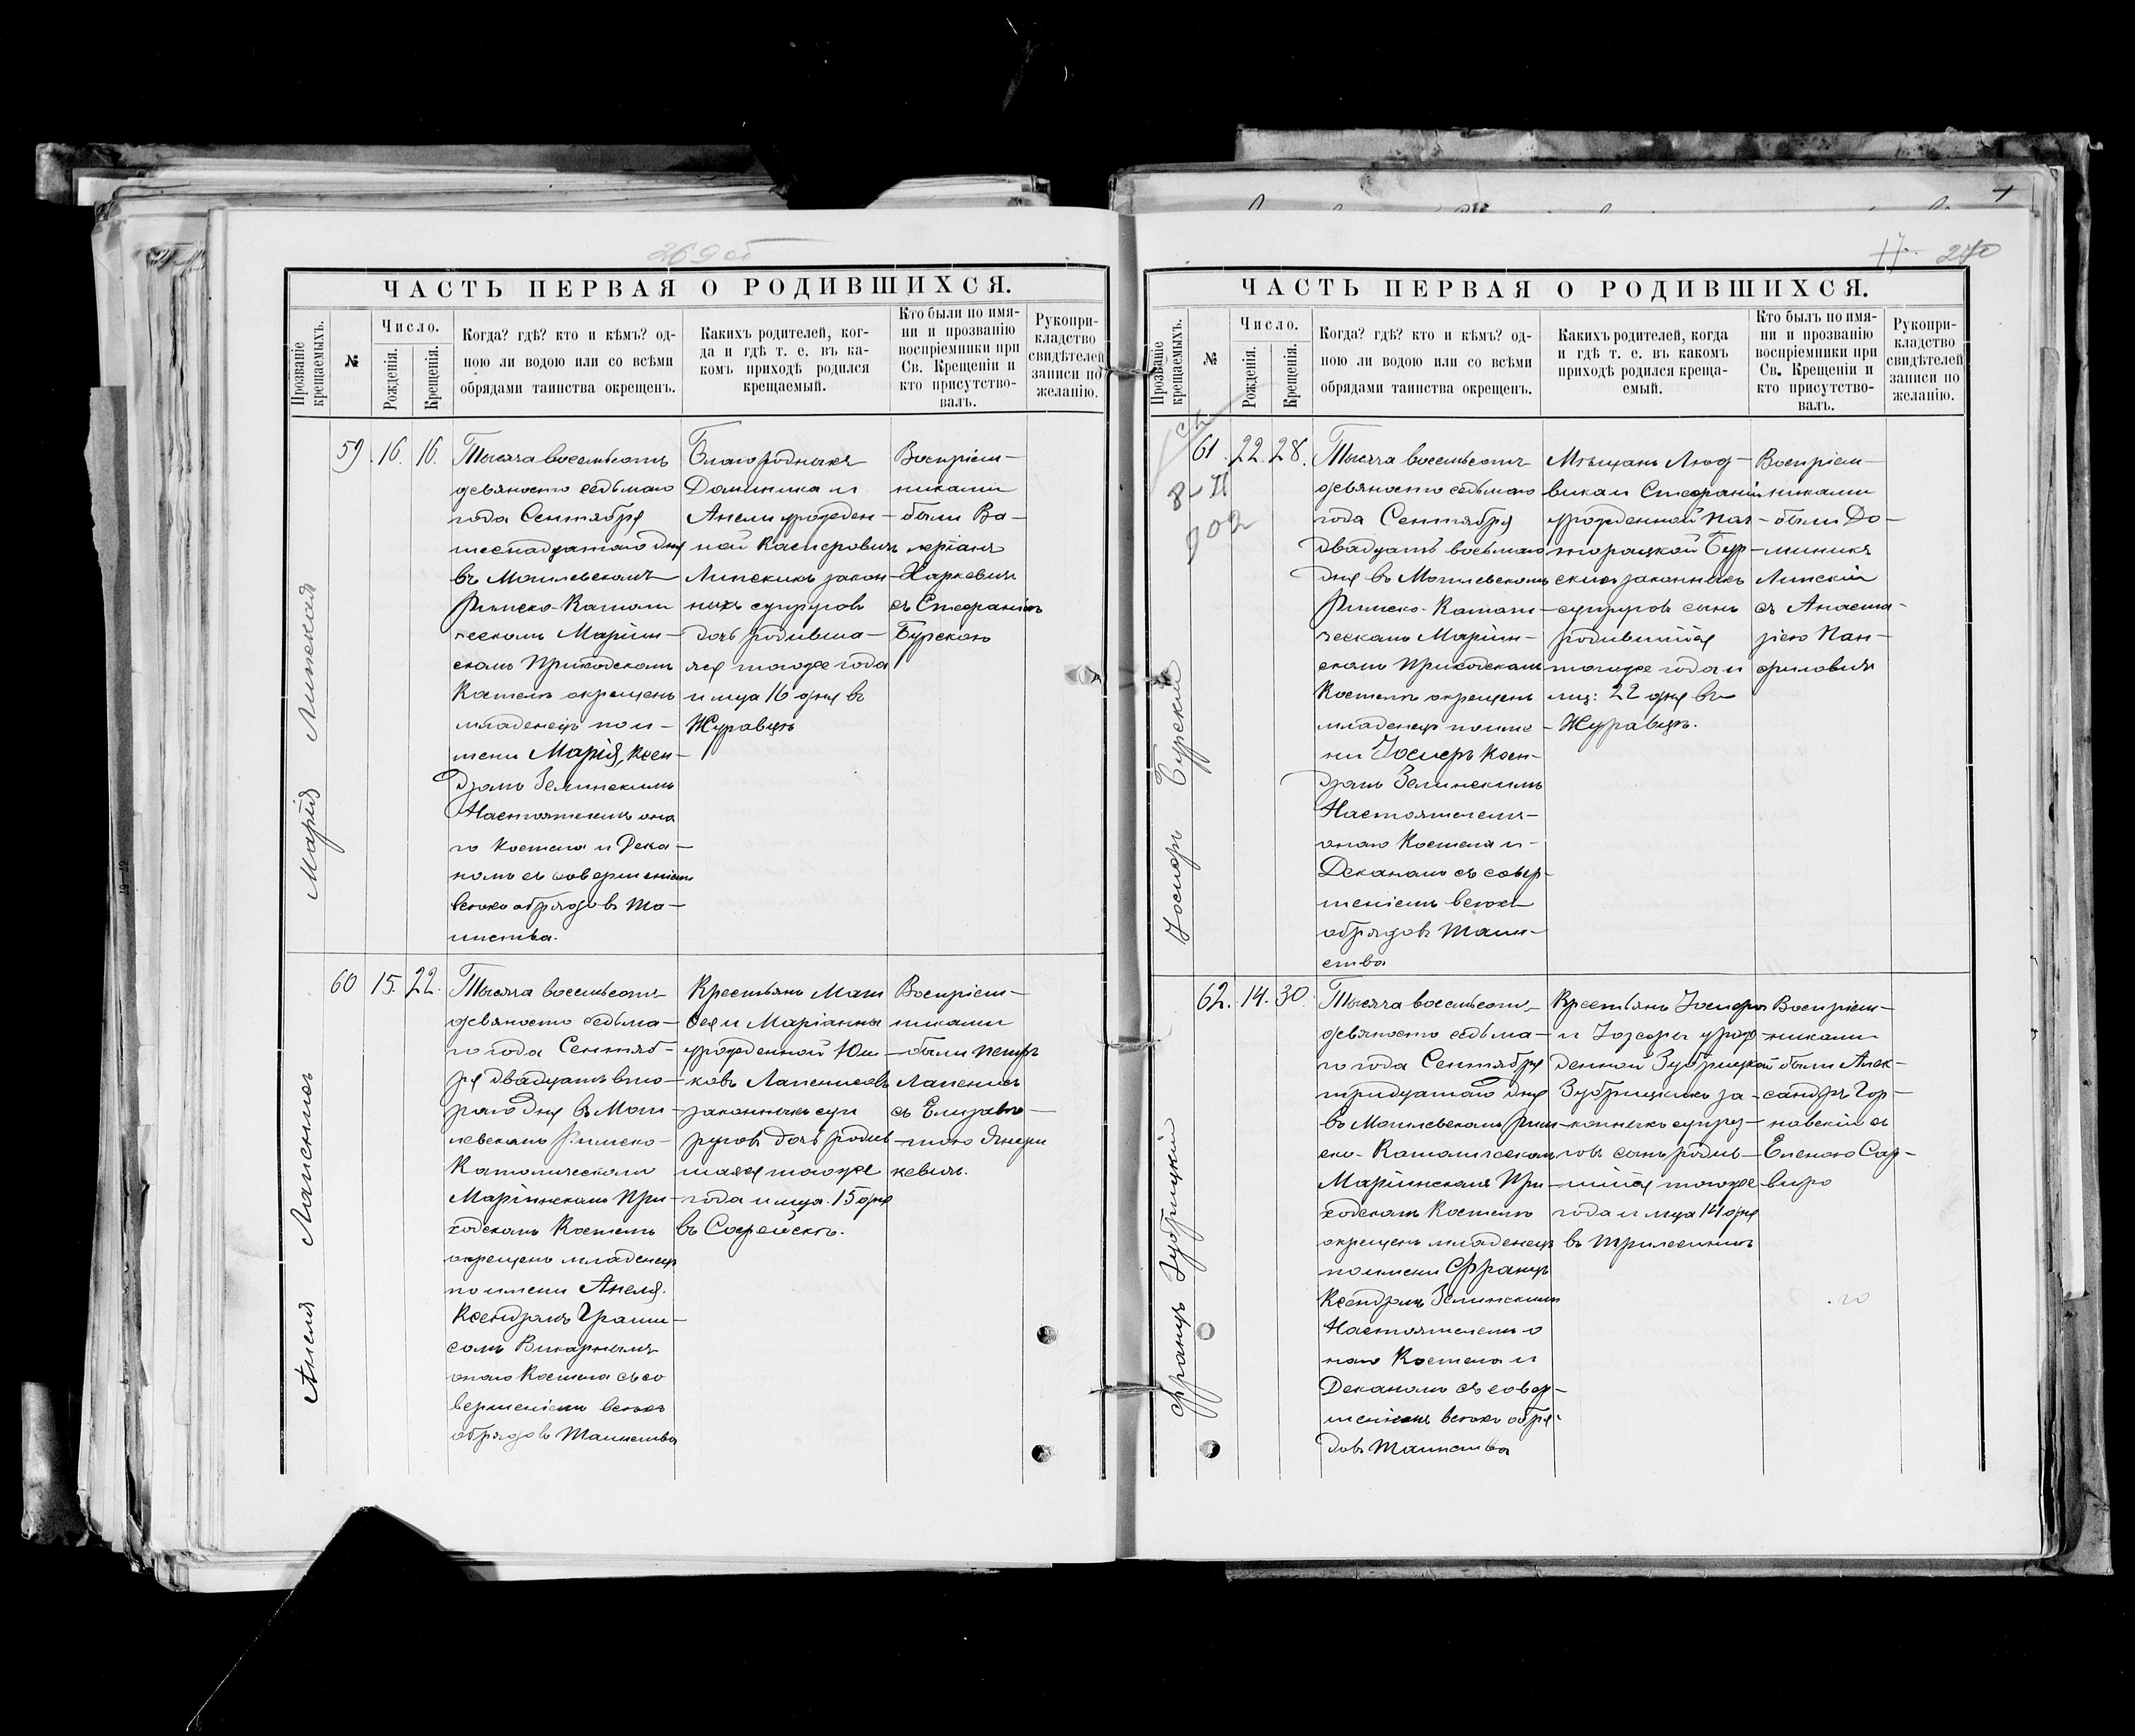 269 об
ЧАСТЬ ПЕРВАЯ О РОДИВШИХСЯ.
Прозваніе крещаемыхъ.
№
Число.
Рожденія.
Крещенія.
Когда? гдѣ? кто и кѣмъ? од-
ною ли водою или со всѣми
обрядами таинства окрещенъ.
Какихъ родителей, ког-
да и гдѣ т. е. въ ка-
комъ приходѣ родился
крещаемый.
Кто были по имя-
ни и прозванію
воспріемники при
Св. Крещеніи и
кто присутство-
валъ.
Рукопри-
кладство
свидѣтелей
записи по
желанію.
Марія Липская
59. 16. 16.
Тысяча восемьсотъ
девяносто седьмаго
года Сентября
шестнадцатаго дня
въ Могилевскомъ
Римско-Католи
ческомъ Маріин-
скомъ Приходскомъ
Костелѣ окрещенъ
младенецъ по и-
мени Марія, Ксен-
дзомъ Зелинскимъ
Настоятелемъ она
го Костела и Дека-
номъ съ совершеніемъ
всѣхъ обрядовъ Та-
инства.
Благородныхъ
Доминика и
Анели урожден-
ной Касперовичъ
Липскихъ закон-
ныхъ супруговъ
дочь родивша-
яся тогоже года
и мца 16 дня въ
Журавцѣ
Воспріем-
никами
были Ва-
леріанъ
Харкевичъ
съ Стефаніею
Бурскою
Анеля Лапенисъ
60 15. 22.
Тысяча восемьсотъ
девяносто седьма-
го года Сентяб-
ря двадцать вто-
раго дня въ Моги
левскомъ Римско-
Католическомъ
Маріинскомъ При-
ходскомъ Костелѣ
окрещенъ младенецъ
по имени Анеля.
Ксендзомъ
Викарнымъ
онаго Костела съ со
вершеніемъ всѣхъ
обрядовъ Таинства
Крестьянъ Мат
ѳея и Маріанны
урожденной Юш-
ковъ Лапенисовъ
законныхъ суп
руговъ дочь родив-
шаяся тогоже
года и мца 15 дня
въ Софейскѣ.
Воспріем-
никами
были Петръ
Лапенисъ
съ Елизаве-
тою
кевичъ.
17. 270
ЧАСТЬ ПЕРВАЯ О РОДИВШИХСЯ.
Прозваніе крещаемыхъ.
№
Число.
Рожденія.
Крещенія.
Когда? гдѣ? кто и кѣмъ? од-
ною ли водою или со всѣми
обрядами таинства окрещенъ.
Какихъ родителей, когда
и гдѣ т. е. въ какомъ
приходѣ родился креща-
емый.
Кто былъ по имя-
ни и прозванію
воспріемники при
Св. Крещеніи и
кто присутство-
валъ.
Рукопри-
кладство
свидѣтелей
записи по
желанію.
8-II
902
Іосифъ Бурскій
61. 22. 28.
Тысяча восемьсотъ
девяносто седьмаго
года Сентября
двадцать восьмаго
дня въ Могилевскомъ
Римско-Католи-
ческомъ Маріин-
скомъ Приходскомъ
Костелѣ окрещенъ
младенецъ по име-
ни Іосифъ Ксен-
дзомъ Зелинскимъ
Настоятелемъ
онаго Костела и-
Деканомъ съ совер-
шеніемъ всѣхъ
обрядовъ Таин-
ства
Мѣщанъ Люд-
вика и Стефаніи
урожденной
Бур-
скихъ законныхъ
супруговъ сынъ
родившійся
тогоже года и
мц: 22 дня въ
Журавцѣ.
Воспріем-
никами
были До-
миникъ
Липскій
съ Анаста-
зіею Пан-
филовичъ
Францъ Зубрицкій
62. 14. 30.
Тысяча восемьсотъ
девяносто седьма-
го года Сентября
тридцатаго дня
въ Могилевскомъ Рим-
ско-Католическомъ
Маріинскомъ При-
ходскомъ Костелѣ
окрещенъ младенецъ
по имени Францъ
Ксендзомъ Зелинскимъ
Настоятелемъ о
наго Костела и
Деканомъ съ совер-
шеніемъ всѣхъ обря-
довъ Таинства
Крестьянъ Іосифа
и Іозефы урож-
денной Зубрицкой
Зубрицкихъ за-
конныхъ супру-
говъ сынъ родив-
шійся тогоже
года и мца 14 дня
въ Трилесинѣ
Воспріем-
никами
были Алек-
сандръ Гор-
новскій съ
Еленою Сад-
виро